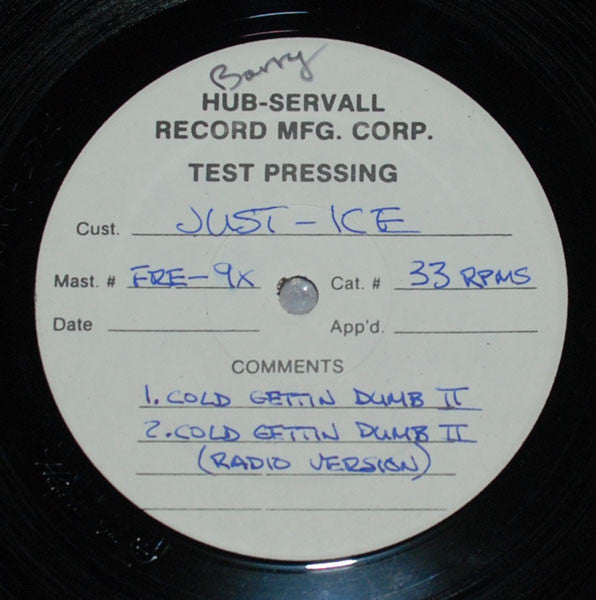 Barry
HUB-SERVALL
RECORD MFG. CORP.
TEST PRESSING
Cust. JUST-ICE
Mast. # FRE-9X Cat. # 33 RPMS
Date App'd.
COMMENTS
1. COLD GETTIN DUMB II
2. COLD GETTIN DUMB II
(RADIO VERSION)